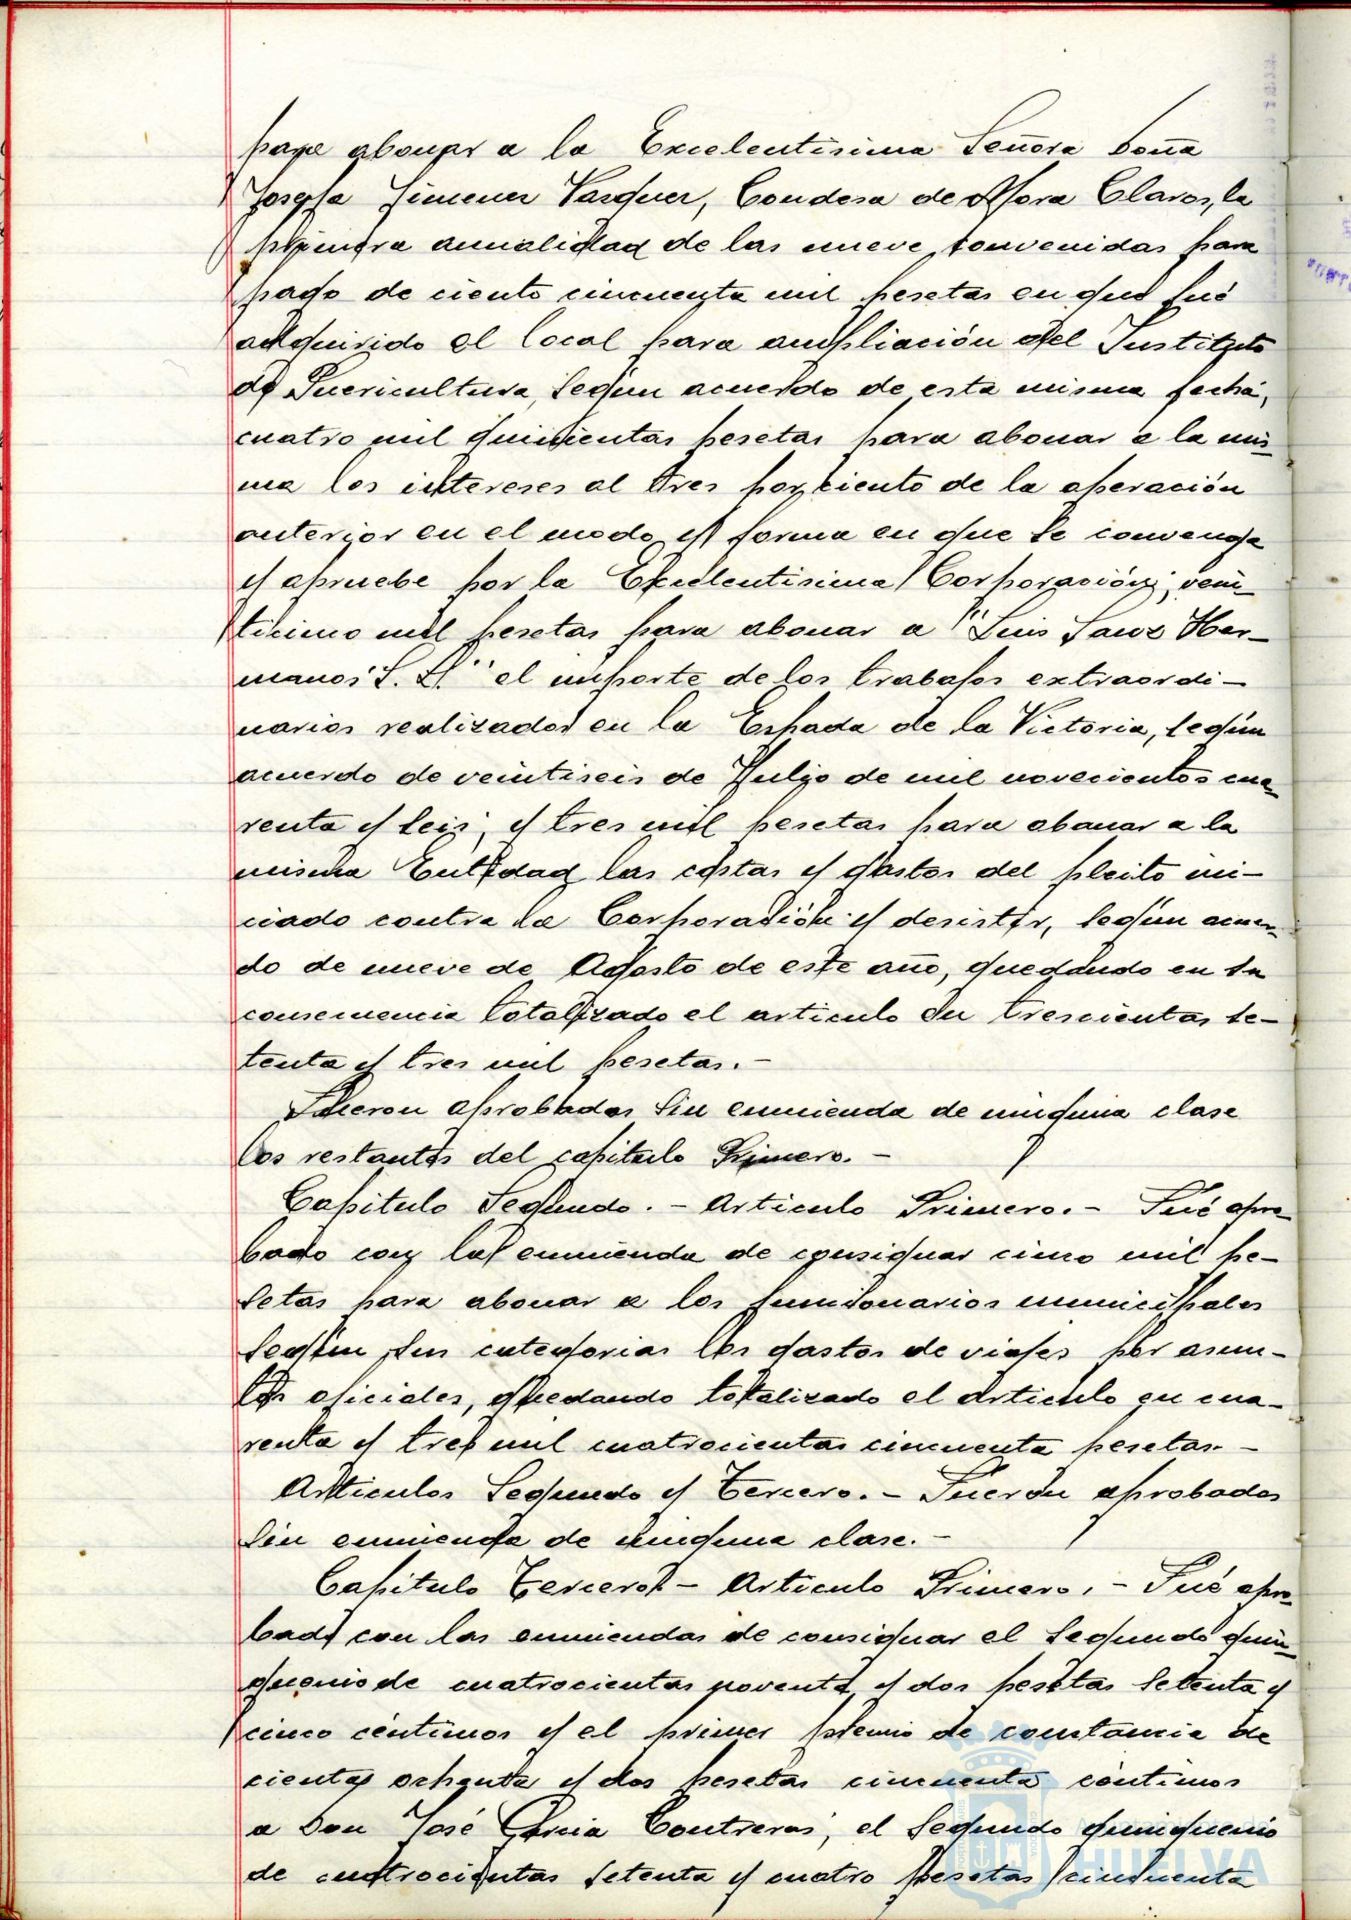 para abonar a la Excelentisima Señora Doña
Josefa Jimenez Vazquez, Condesa de Mora Claros, la
primera anualidad de las nueve convenidas para
pago de ciento cincuenta mil pesetas en que fué
adquirido el local para ampliación del Instituto
de Puericultura, según acuerdo de esta misma fecha,
cuatro mil quinientas pesetas para abonar a la mis-
ma los intereses al tres por ciento de la operación
anterior en el modo y forma en que se convenga
y apruebe por la Excelentisima Corporación; vein-
ticinco mil pesetas para abonar a "Luis Sanz Her-
manos S. L." el importe de los trabajos extraordi-
narios realizados en la Espada de la Victoria, según
acuerdo de veintiseis de Julio de mil novecientos cua-
renta y seis; y tres mil pesetas para abonar a la
misma Entidad las costas y gastos del pleito ini-
ciado contra la Corporación y desistir, según acuer-
do de nueve de Agosto de este año, quedando en su
consecuencia totalizado el articulo en trescientas se-
tenta y tres mil pesetas.-
Fueron aprobados sin enmienda de ninguna clase
los restantes del capitulo Primero.-
Capitulo Segundo.- Articulo Primero.- Fué apro-
bado con la enmienda de consignar cinco mil pe-
setas para abonar a los funcionarios municipales
según sus categorias los gastos de viajes por asun-
tos oficiales, quedando totalizado el articulo en cua-
renta y tres mil cuatrocientas cincuenta pesetas.-
Articulos Segundo y Tercero.- Fueron aprobados
sin enmienda de ninguna clase.-
Capitulo Tercero.- Articulo Primero.- Fué apro-
bado con las enmiendas de consignar el segundo quin-
quenio de cuatrocientas noventa y dos pesetas setenta y
cinco céntimos y el primer premio de constancia de
cientas ochenta y dos pesetas cincuenta céntimos
a Don José Garcia Contreras; el segundo quinquenio
de cuatrocientas setenta y cuatro pesetas cincuenta
HUELVA